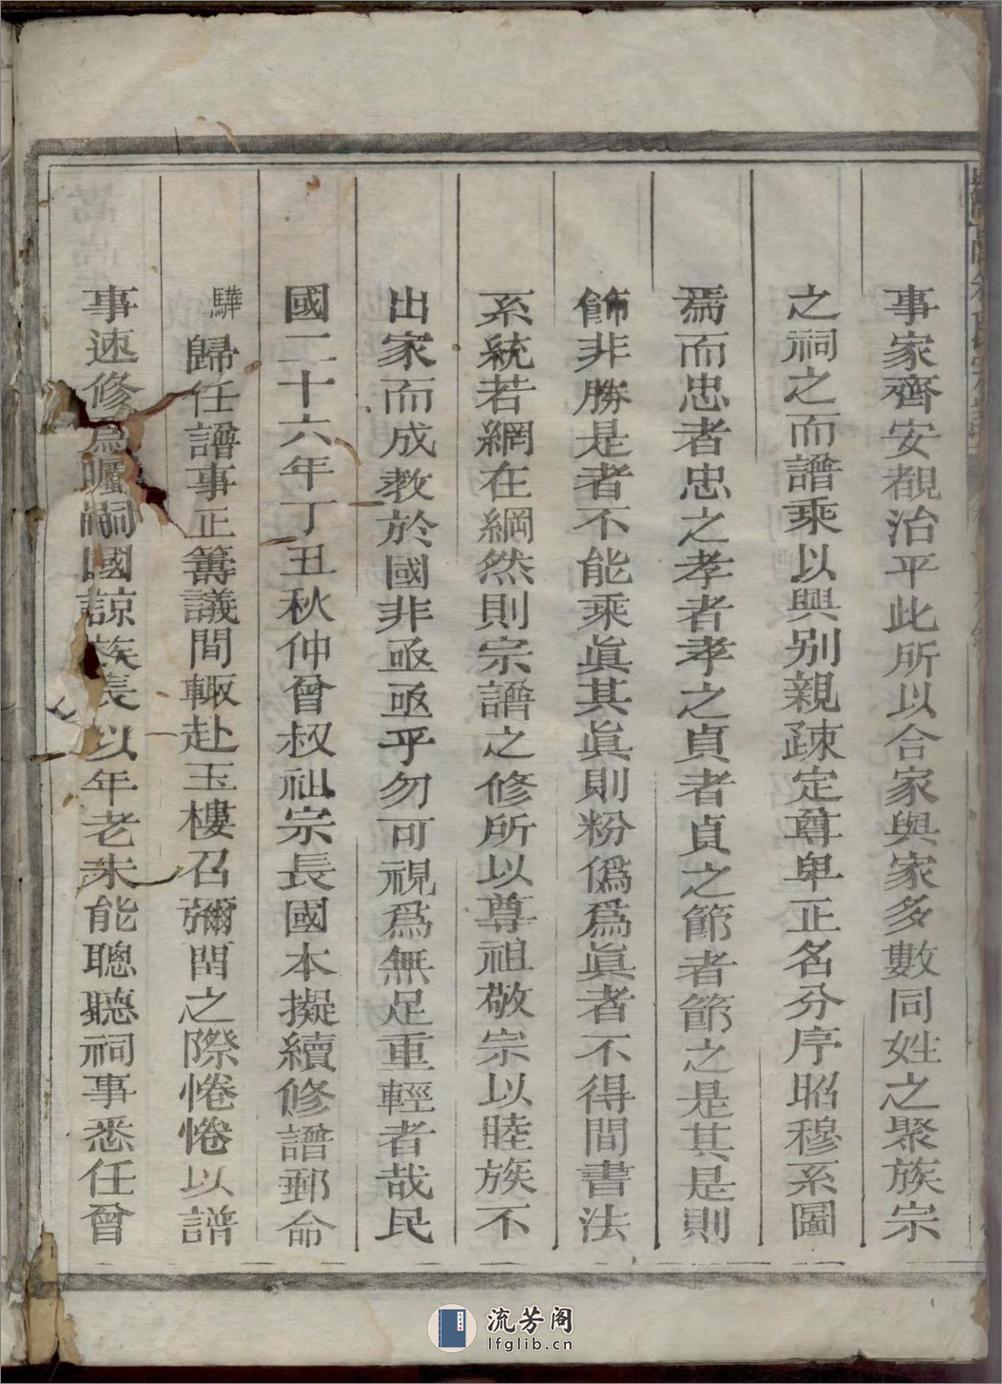 事家齊安覩治平此所以合家與家多數同姓之聚族宗
之祠之而譜乘以興别親疎定尊卑正名分序昭穆系圖
焉而忠者忠之孝者孝之貞者貞之節者節之是其是則
飾非勝是者不能乘眞其眞則粉僞爲眞者不得間書法
系統若網在綱然則宗譜之修所以尊祖敬宗以睦族不
出家而成教於國非亟亟乎勿可視爲無足重輕者哉民
國二十六年丁丑秋仲曾叔祖宗長國本擬續修譜郵命
驊歸任譜事正籌議間輙赴玉樓召彌留之際惓惓以譜
事速修爲囑嗣國諒族長以年老未能聰聽祠事悉任曾
流芳阁
lfglib.cn